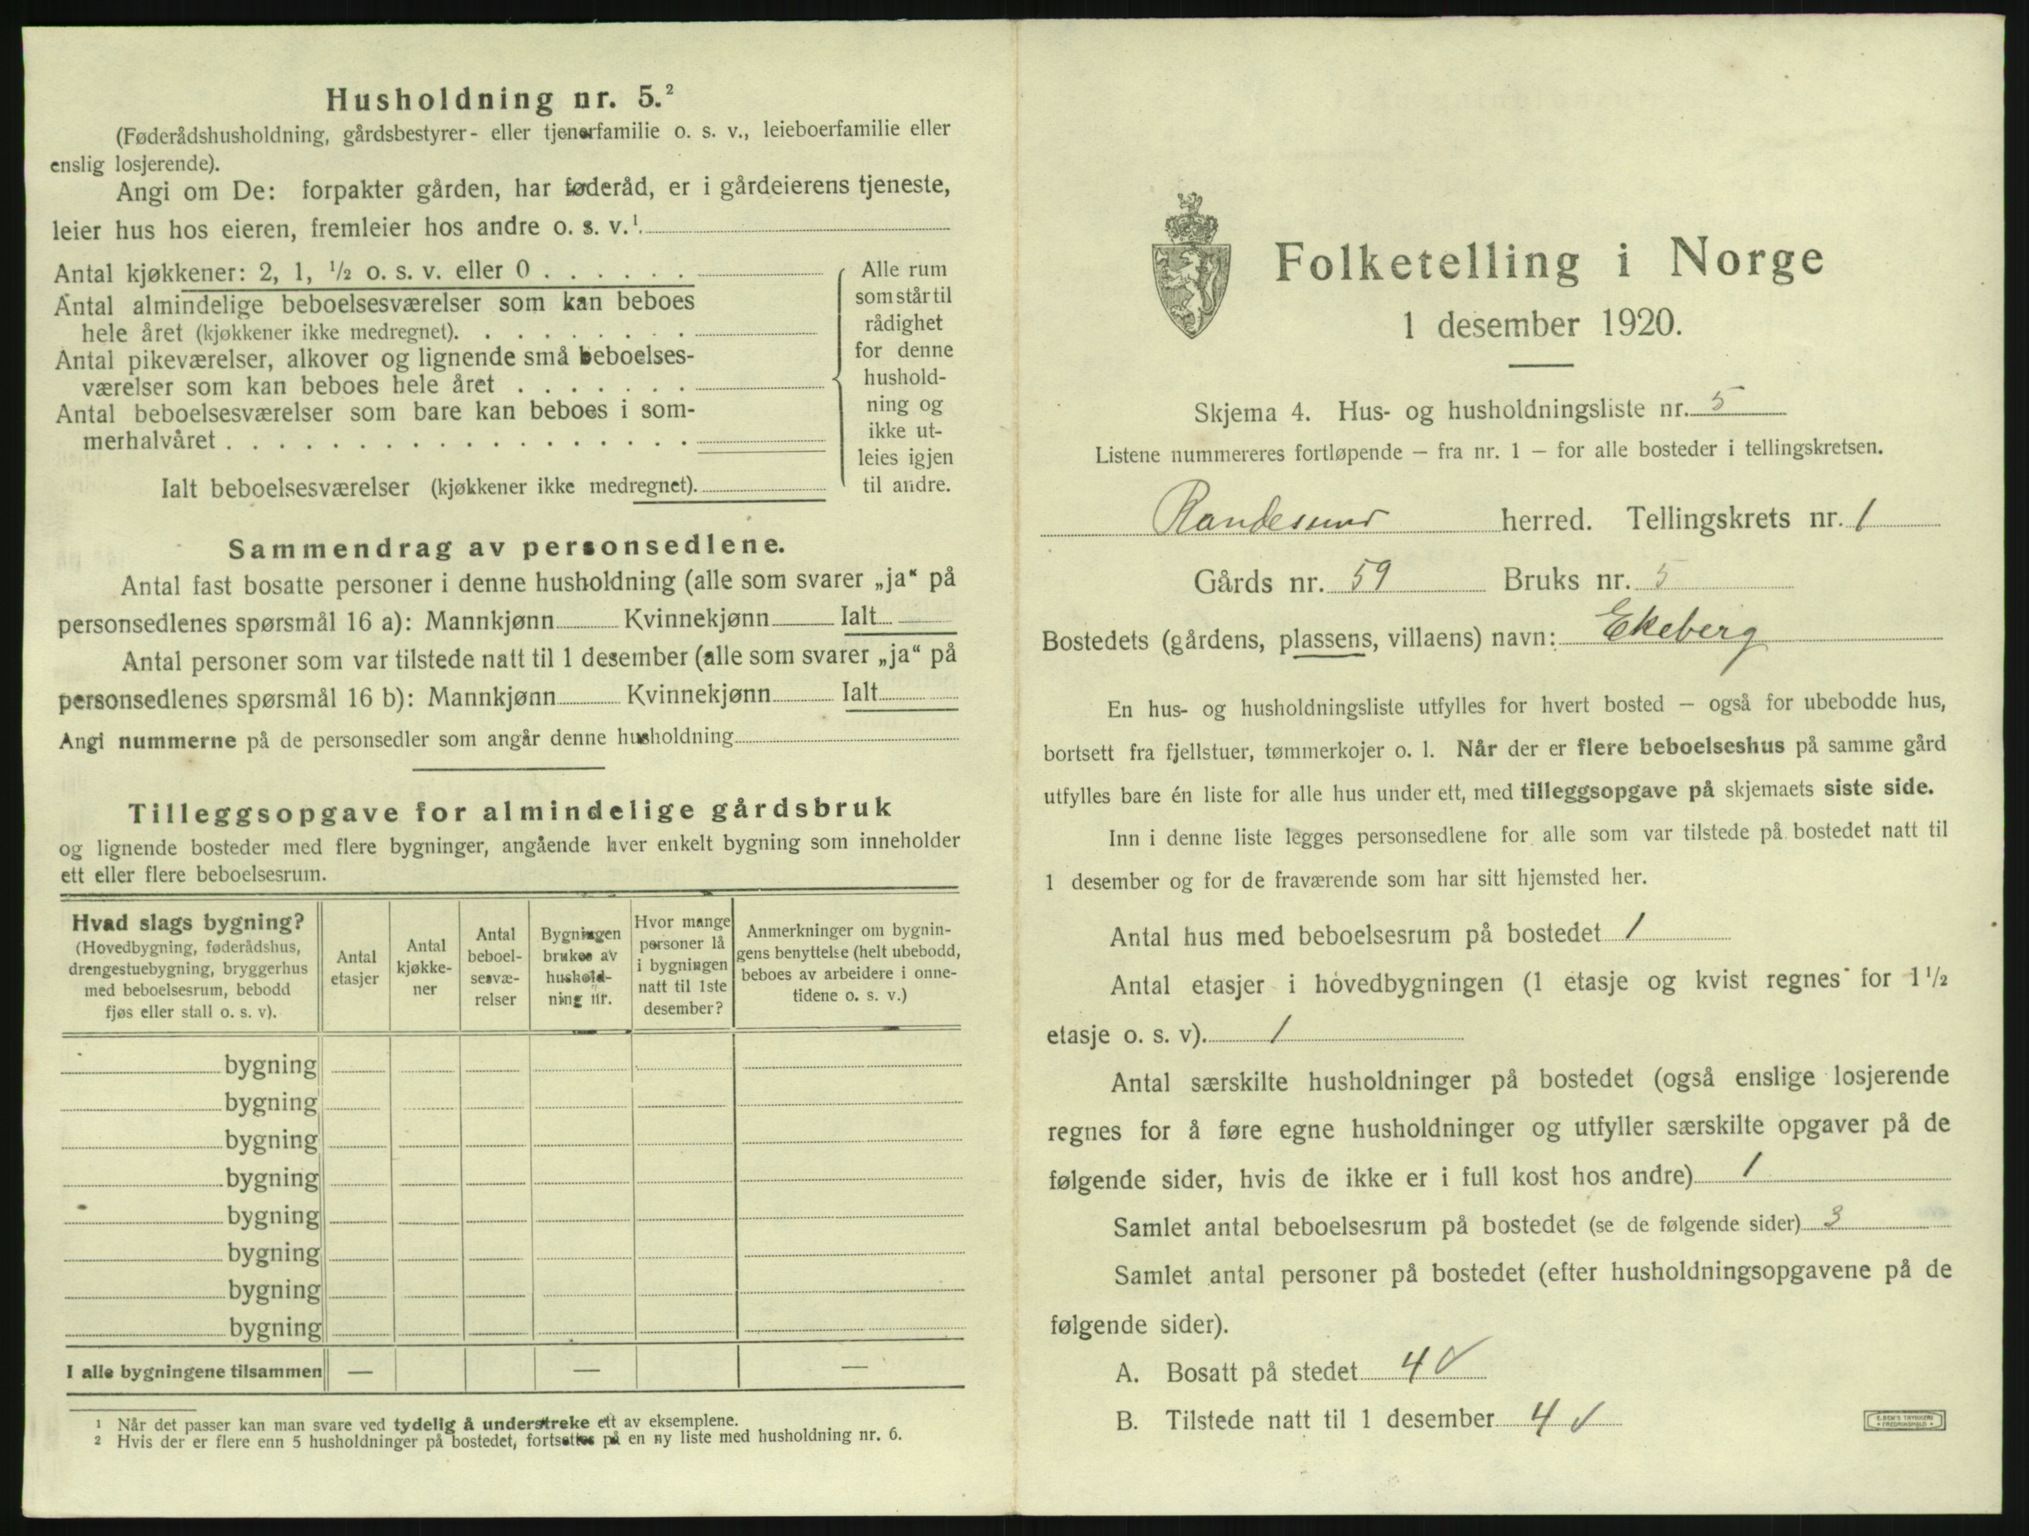 Husholdning nr. 5.²
(Føderådshusholdning, gårdsbestyrer- eller tjenerfamilie o. s. v., leieboerfamilie eller
enslig losjerende).
Angi om De: forpakter gården, har føderåd, er i gårdeierens tjeneste,
leier hus hos eieren, fremleier hos andre o. s. v.¹
Antal kjøkkener: 2, 1, ½ o. s. v. eller 0 . . . . . .
Antal almindelige beboelsesværelser som kan beboes
hele året (kjøkkener ikke medregnet). . . . . . . . .
Antal pikeværelser, alkover og lignende små beboelses-
værelser som kan beboes hele året . . . . . . .
Antal beboelsesværelser som bare kan beboes i som-
merhalvåret . . . . . . . . . . . . . . . . . .
Ialt beboelsesværelser (kjøkkener ikke medregnet).
Alle rum
som står til
rådighet
for denne
hushold-
ning og
ikke ut-
leies igjen
til andre.
Sammendrag av personsedlene.
Antal fast bosatte personer i denne husholdning (alle som svarer „ja“ på
personsedlenes spørsmål 16 a): Mannkjønn Kvinnekjønn Ialt
Antal personer som var tilstede natt til 1 desember (alle som svarer „ja“ på
personsedlenes spørsmål 16 b): Mannkjønn Kvinnekjønn Ialt
Angi nummerne på de personsedler som angår denne husholdning
Tilleggsopgave for almindelige gårdsbruk
og lignende bosteder med flere bygninger, angående hver enkelt bygning som inneholder
ett eller flere beboelsesrum.
Hvad slags bygning?
(Hovedbygning, føderådshus,
drengestuebygning, bryggerhus
med beboelsesrum, bebodd
fjøs eller stall o. s. v).
Antal
etasjer
Antal
kjøkke-
ner
Antal
beboel-
sesvæ-
relser
Bygningen
brukes av
hushold-
ning nr.
Hvor mange
personer lå
i bygningen
natt til 1ste
desember?
Anmerkninger om bygnin-
gens benyttelse (helt ubebodd,
beboes av arbeidere i onne-
tidene o. s. v.)
bygning
bygning
bygning
bygning
bygning
bygning
bygning
bygning
I alle bygningene tilsammen — — —
¹ Når det passer kan man svare ved tydelig å understreke ett av eksemplene.
² Hvis der er flere enn 5 husholdninger på bostedet, fortsettes på en ny liste med husholdning nr. 6.
Folketelling i Norge
1 desember 1920.
Skjema 4. Hus- og husholdningsliste nr. 5
Listene nummereres fortløpende – fra nr. 1 – for alle bosteder i tellingskretsen.
Randesund herred. Tellingskrets nr. 1
Gårds nr. 59 Bruks nr. 5
Bostedets (gårdens, plassens, villaens) navn: Ekeberg
En hus- og husholdningsliste utfylles for hvert bosted – også for ubebodde hus,
bortsett fra fjellstuer, tømmerkojer o. l. Når der er flere beboelseshus på samme gård
utfylles bare én liste for alle hus under ett, med tilleggsopgave på skjemaets siste side.
Inn i denne liste legges personsedlene for alle som var tilstede på bostedet natt til
1 desember og for de fraværende som har sitt hjemsted her.
Antal hus med beboelsesrum på bostedet 1
Antal etasjer i hovedbygningen (1 etasje og kvist regnes for 1½
etasje o. s. v). 1
Antal særskilte husholdninger på bostedet (også enslige losjerende
regnes for å føre egne husholdninger og utfyller særskilte opgaver på de
følgende sider, hvis de ikke er i full kost hos andre) 1
Samlet antal beboelsesrum på bostedet (se de følgende sider) 3
Samlet antal personer på bostedet (efter husholdningsopgavene på de
følgende sider).
A. Bosatt på stedet 4 ✓
B. Tilstede natt til 1 desember 4 ✓